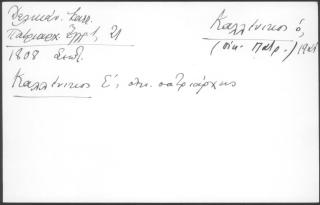 Δελικάν. Καλλ.
Πατριαρχ. Έγγρ. 1, 21
1808 Σεπτ.
Καλλίνικος ὁ,
(οἰκ. Πατρ.-)
Καλλίνικος Ε´, οἰκ. πατριάρχης